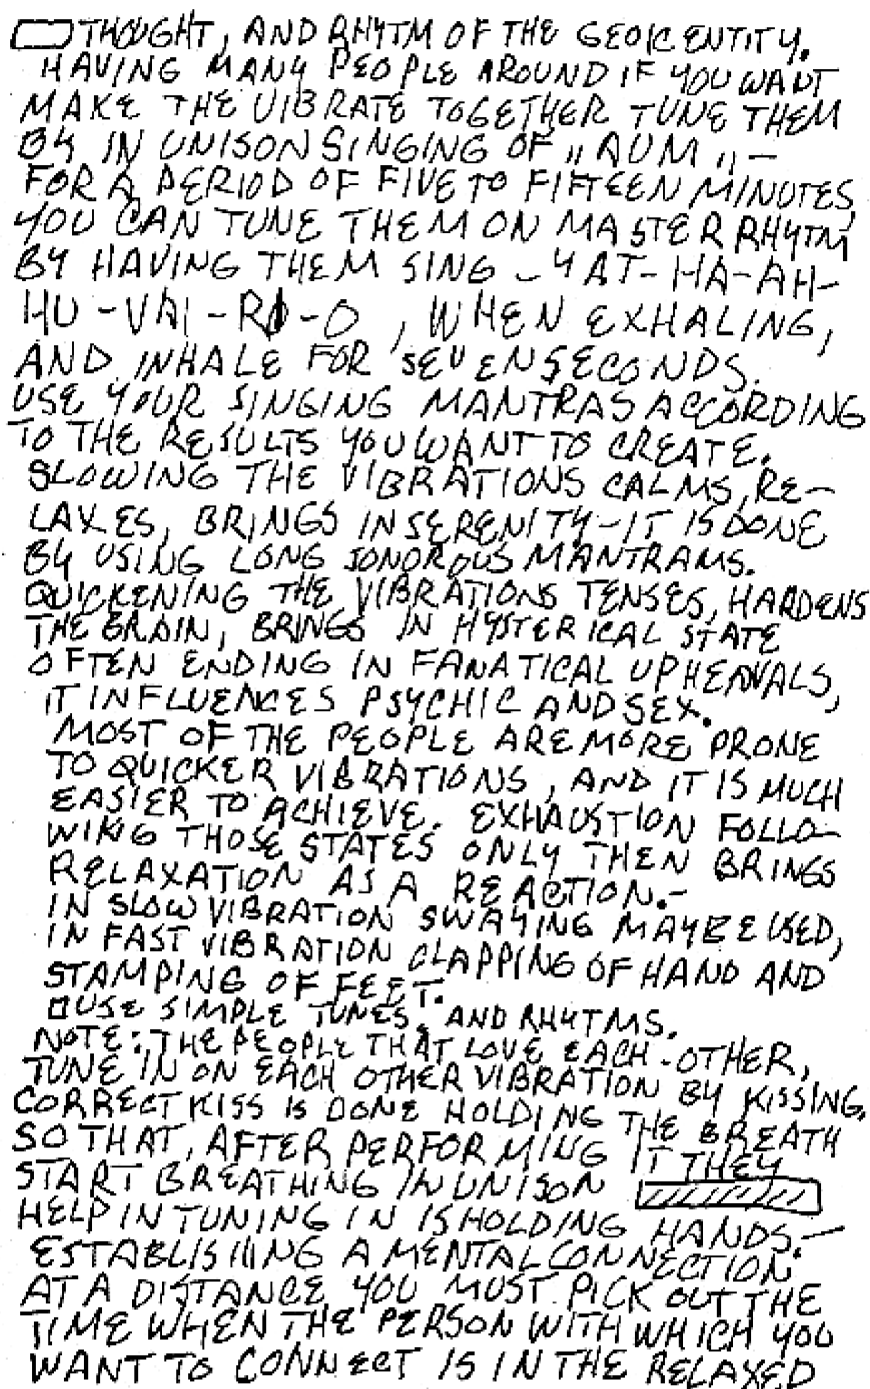 THOUGHT, AND RHYTM OF THE GEOIC ENTITY.
HAVING MANY PEOPLE AROUND IF YOU WANT
MAKE THE VIBRATE TOGETHER TUNE THEM
BY IN UNISON SINGING OF „AUM„ —
FOR A PERIOD OF FIVE TO FIFTEEN MINUTES,
YOU CAN TUNE THEM ON MASTER RHYTM
BY HAVING THEM SING - YAT-HA-AH-
HU-VAI-RI-O, WHEN EXHALING,
AND INHALE FOR SEVEN SECONDS.
USE YOUR SINGING MANTRAS ACCORDING
TO THE RESULTS YOU WANT TO CREATE.
SLOWING THE VIBRATIONS CALMS, RE-
LAXES, BRINGS IN SERENITY - IT IS DONE
BY USING LONG SONOROUS MANTRAMS.
QUICKENING THE VIBRATIONS TENSES, HARDENS
THE BRAIN, BRINGS IN HYSTERICAL STATE
OFTEN ENDING IN FANATICAL UPHEAVALS,
IT INFLUENCES PSYCHIC AND SEX.
MOST OF THE PEOPLE ARE MORE PRONE
TO QUICKER VIBRATIONS, AND IT IS MUCH
EASIER TO ACHIEVE. EXHAUSTION FOLLO-
WING THOSE STATES ONLY THEN BRINGS
RELAXATION AS A REACTION.-
IN SLOW VIBRATION SWAYING MAY BE USED,
IN FAST VIBRATION CLAPPING OF HAND AND
STAMPING OF FEET.
USE SIMPLE TUNES, AND RHYTMS.
NOTE: THE PEOPLE THAT LOVE EACH-OTHER,
TUNE IN ON EACH OTHER VIBRATION BY KISSING,
CORRECT KISS IS DONE HOLDING THE BREATH
SO THAT, AFTER PERFORMING IT THEY
START BREATHING IN UNISON
HELP IN TUNING IN IS HOLDING HANDS.-
ESTABLISHING A MENTAL CONNECTION
AT A DISTANCE YOU MUST PICK OUT THE
TIME WHEN THE PERSON WITH WHICH YOU
WANT TO CONNECT IS IN THE RELAXED